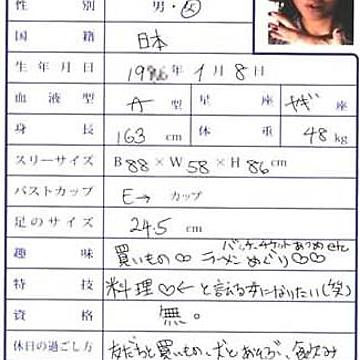 性 別 男・女
国 籍 日本
生年月日 19 年 1月 8日
血液型 A 型 星 座 ヤギ 座
身 長 163 cm 体 重 48 kg
スリーサイズ B 88 × W 58 × H 86 cm
バストカップ E→ カップ
足のサイズ 24.5 cm
趣 味 買いもの♡ ラーメンめぐり♡♡
特 技 料理♡← と言える女になりたい(笑)
資 格 無。
休日の過ごし方 友だちと買いもの、犬とあそぶ、